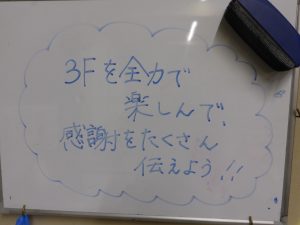 3Fを全力で
楽しんで、
感謝をたくさん
伝えよう!!